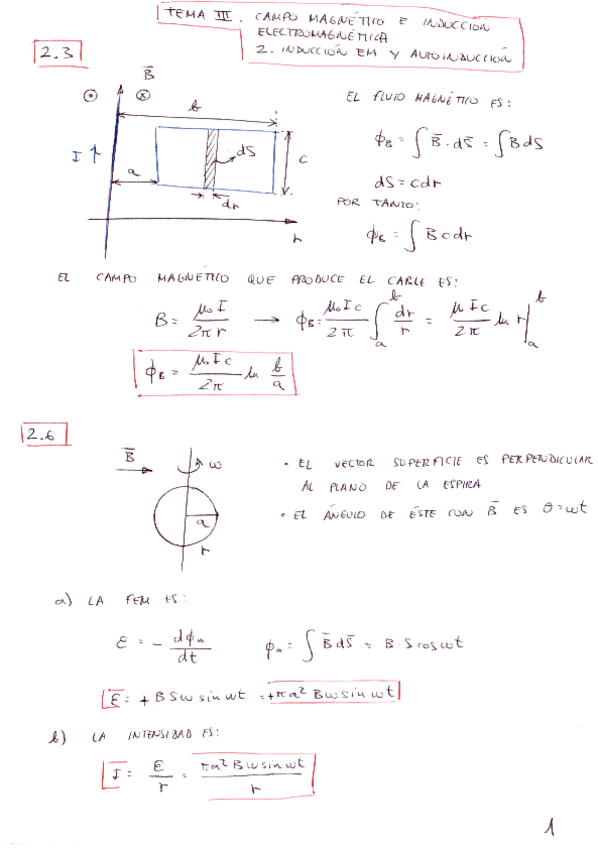 TEMA III. CAMPO MAGNÉTICO E INDUCCIÓN
ELECTROMAGNÉTICA
2. INDUCCIÓN EM Y AUTOINDUCCIÓN
2.3
B̅
b
I ↑
a
dS
c
dr
r
EL FLUJO MAGNÉTICO ES:
ϕ_B = ∫ B̅ · dS̅ = ∫ B dS
dS = c dr
POR TANTO:
ϕ_B = ∫ B c dr
EL CAMPO MAGNÉTICO QUE PRODUCE EL CABLE ES:
B = μ₀ I / 2π r → ϕ_B = μ₀ I c / 2π ∫_a^b dr / r = μ I c / 2π ln r |_a^b
ϕ_B = μ₀ I c / 2π ln b / a
2.6
B̅
ω
a
r
• EL VECTOR SUPERFICIE ES PERPENDICULAR
AL PLANO DE LA ESPIRA
• EL ÁNGULO DE ÉSTE CON B̅ ES θ = ωt
a) LA FEM ES:
ε = - dϕ_m / dt ϕ_m = ∫ B̅ dS̅ = B · S cos ωt
ε = + B S ω sin ωt = + π a² B ω sin ωt
b) LA INTENSIDAD ES:
I = ε / r = π a² B ω sin ωt / r
1